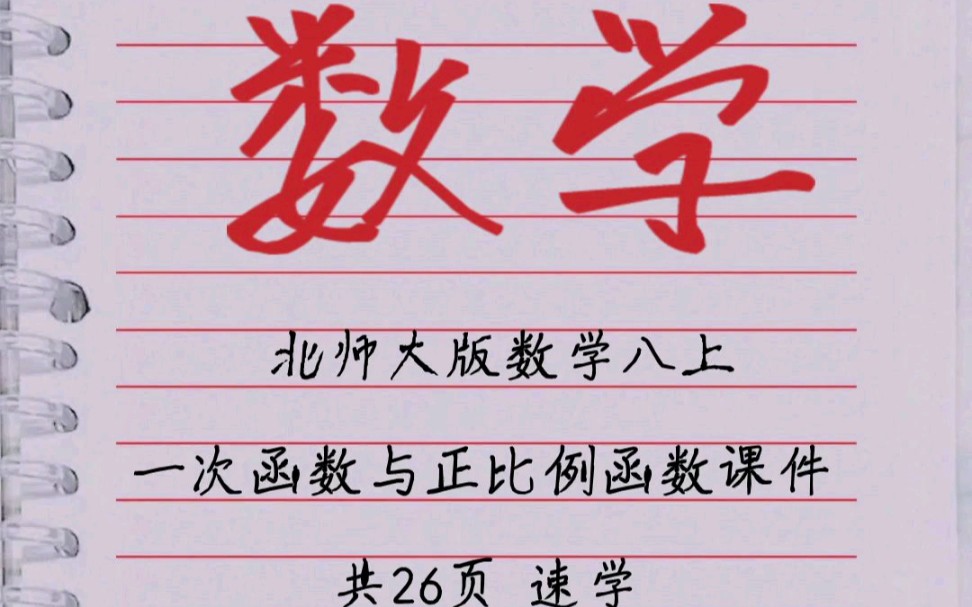 数学
北师大版数学八上
一次函数与正比例函数课件
共26页 速学